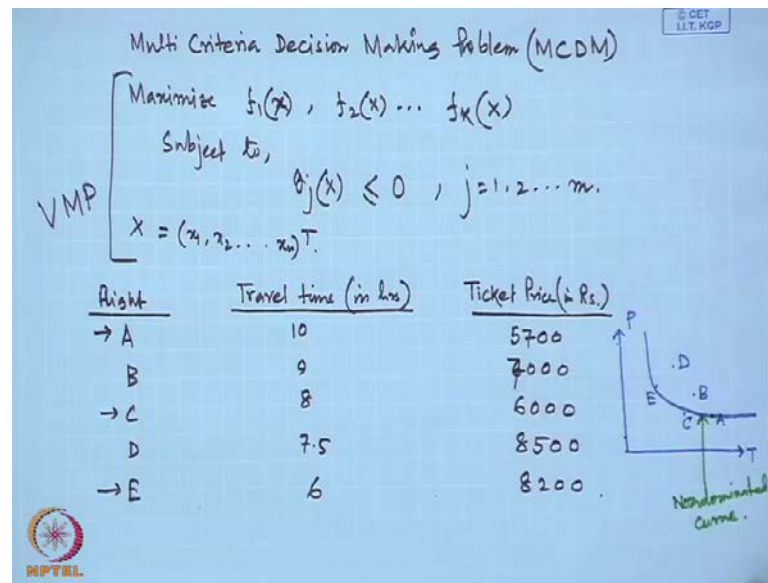 © CET
I.I.T. KGP
Multi Criteria Decision Making Problem (MCDM)
Maximize f₁(x), f₂(x) ... fK(x)
Subject to,
gj(x) ≤ 0 , j=1,2...m.
VMP
X = (x₁, x₂ ... xn)T.
Flight Travel time (in hrs) Ticket Price (in Rs.)
→ A 10 5700
B 9 7000
→ C 8 6000
D 7.5 8500
→ E 6 8200.
P
.D
E .B
C A
T
Nondominated
curve.
NPTEL